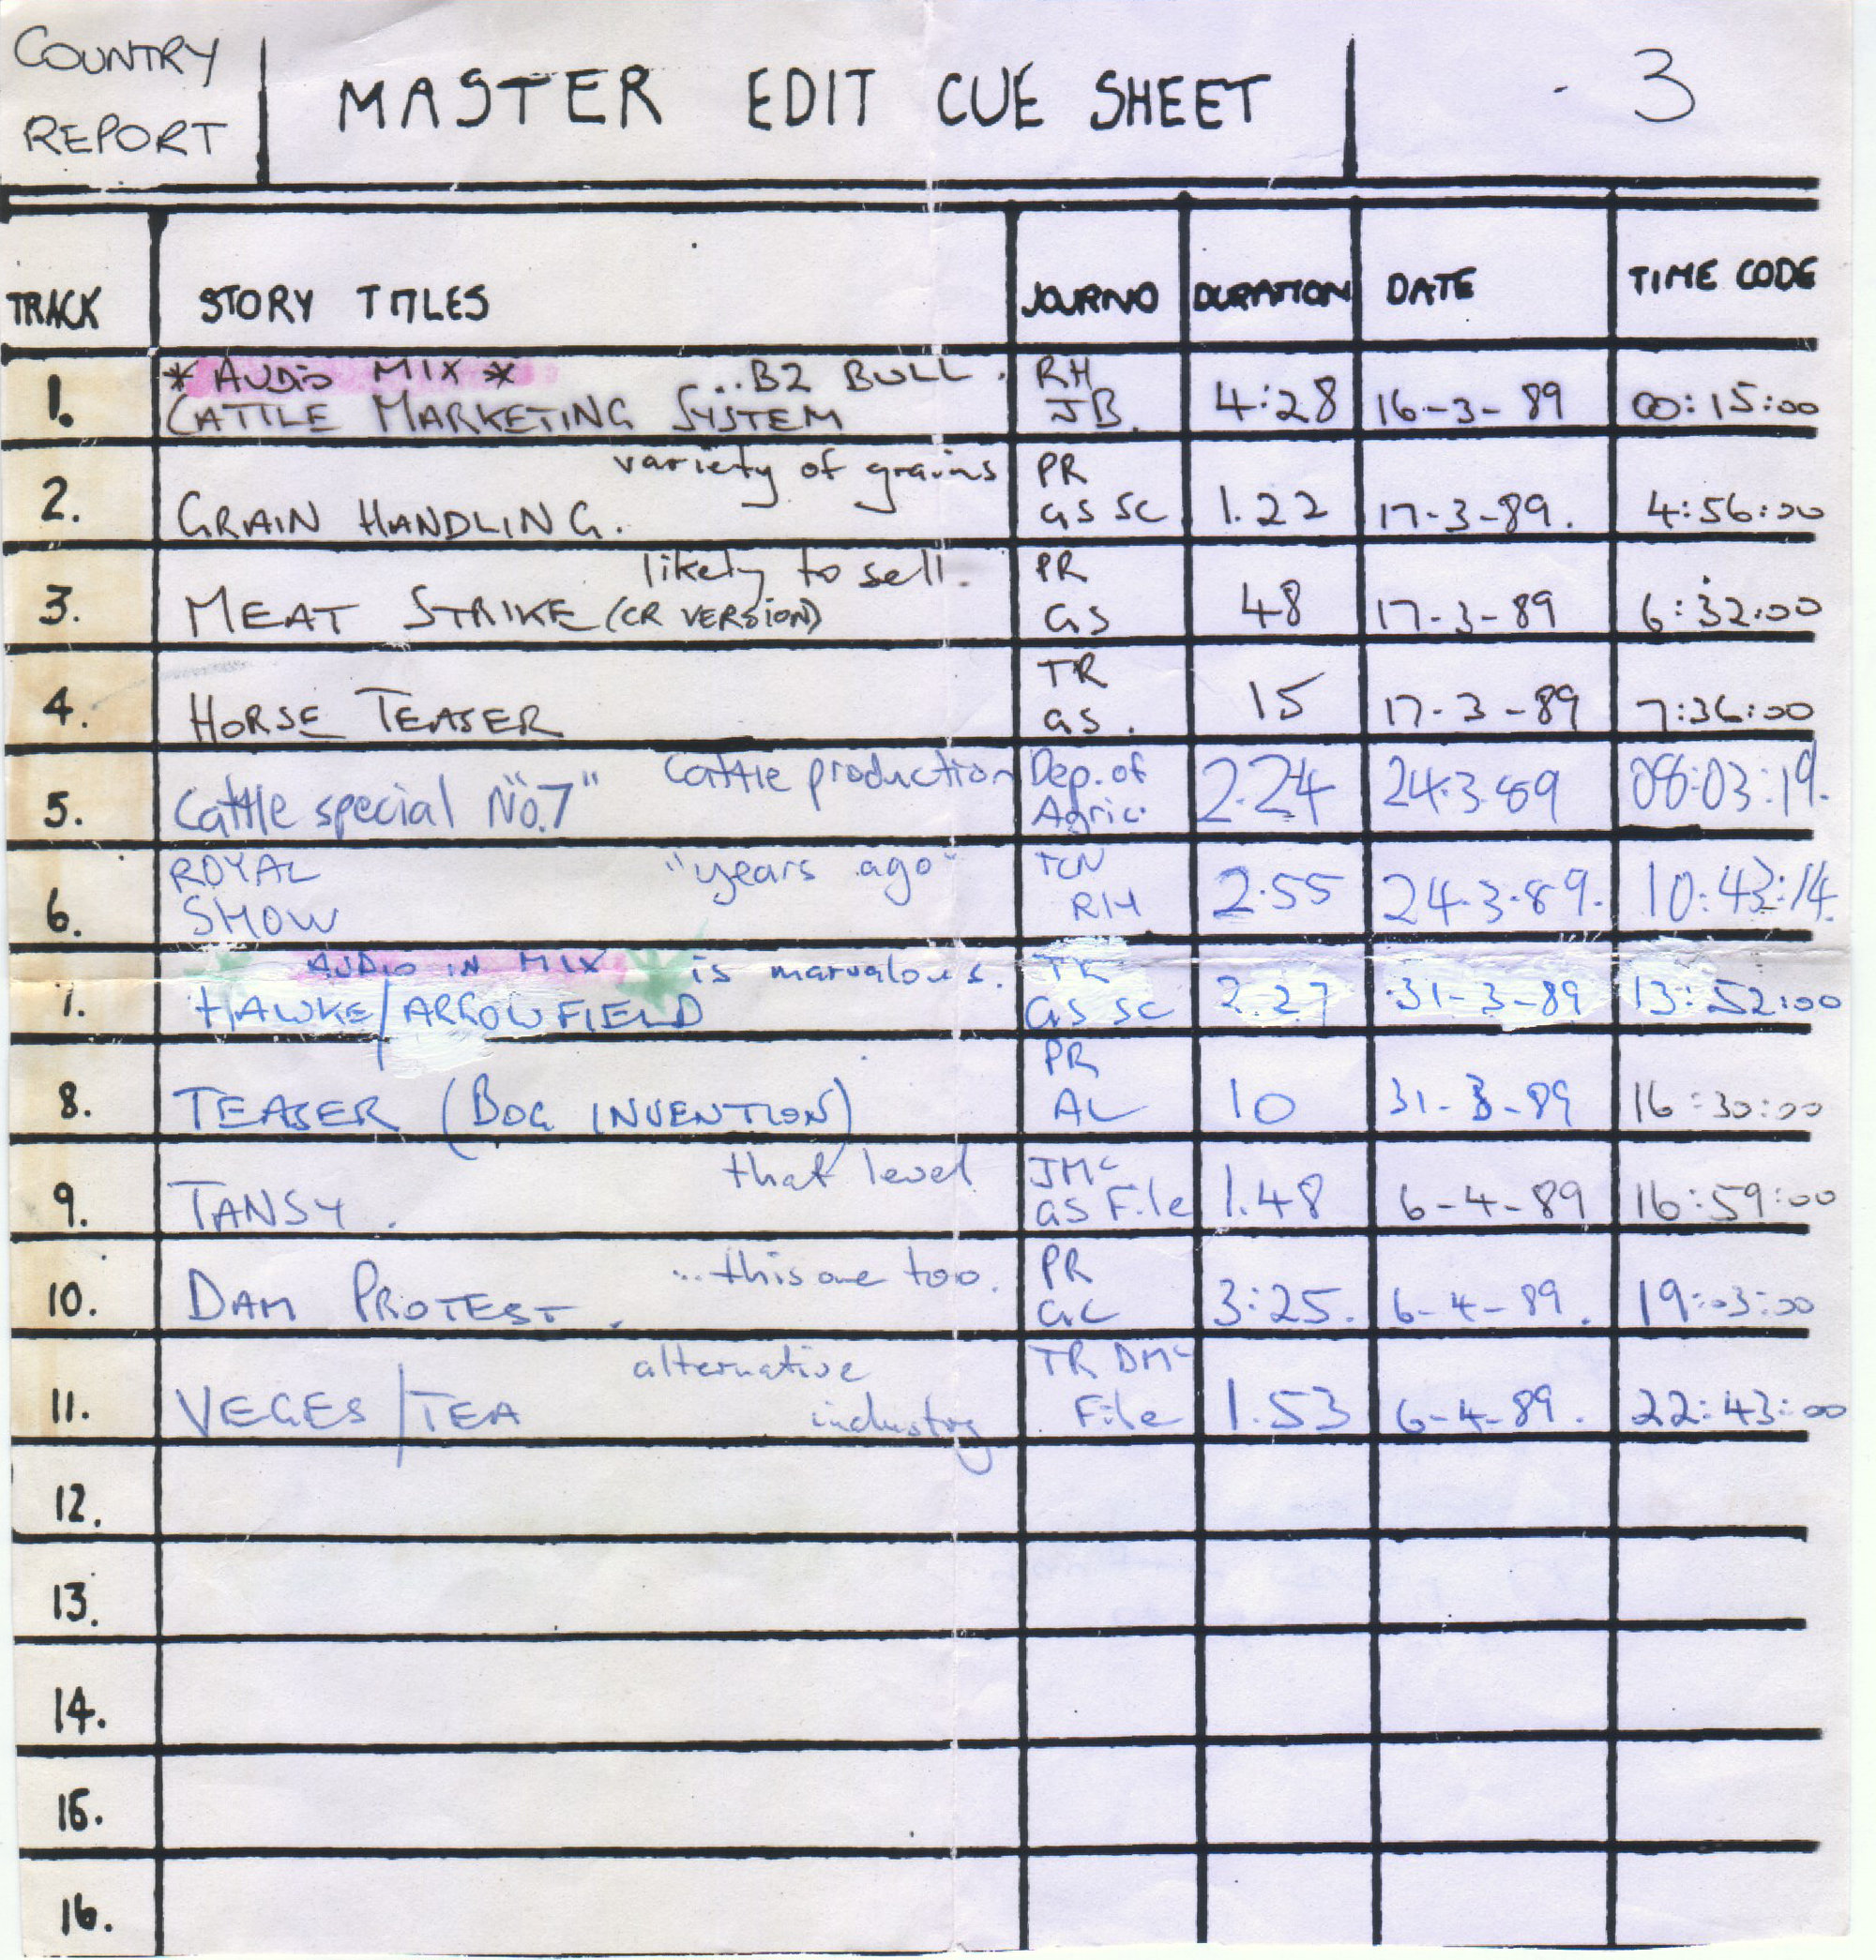 COUNTRY REPORT
MASTER EDIT CUE SHEET - 3
TRACK STORY TITLES JOURNO DURATION DATE TIME CODE
* AUDIO MIX * ...B2 BULL. RH
1. CATTLE MARKETING SYSTEM JB. 4:28 16-3-89 00:15:00
variety of grains PR
2. GRAIN HANDLING. GS SC 1.22 17-3-89. 4:56:00
likely to sell. PR
3. MEAT STRIKE (CR VERSION) GS 48 17-3-89 6:32:00
TR
4. HORSE TEASER GS. 15 17-3-89 7:36:00
Cattle production Dep. of
5. Cattle special "No.7" Agric. 2.24 24.3.89 08:03:19.
ROYAL "years ago" TCN
6. SHOW RH 2.55 24.3.89. 10:43:14.
AUDIO IN MIX is marvalous. TR
7. HAWKE/ARROWFIELD GS SC 2.27 31-3-89 13:52:00
PR
8. TEASER (BOG INVENTION) AL 10 31-3-89 16:30:00
that level JMc
9. TANSY. GS File 1.48 6-4-89 16:59:00
...this one too. PR
10. DAM PROTEST. GC 3:25. 6-4-89. 19:03:00
alternative TR DMc
11. VEGES/TEA industry File 1.53 6-4-89. 22:43:00
12.
13.
14.
15.
16.